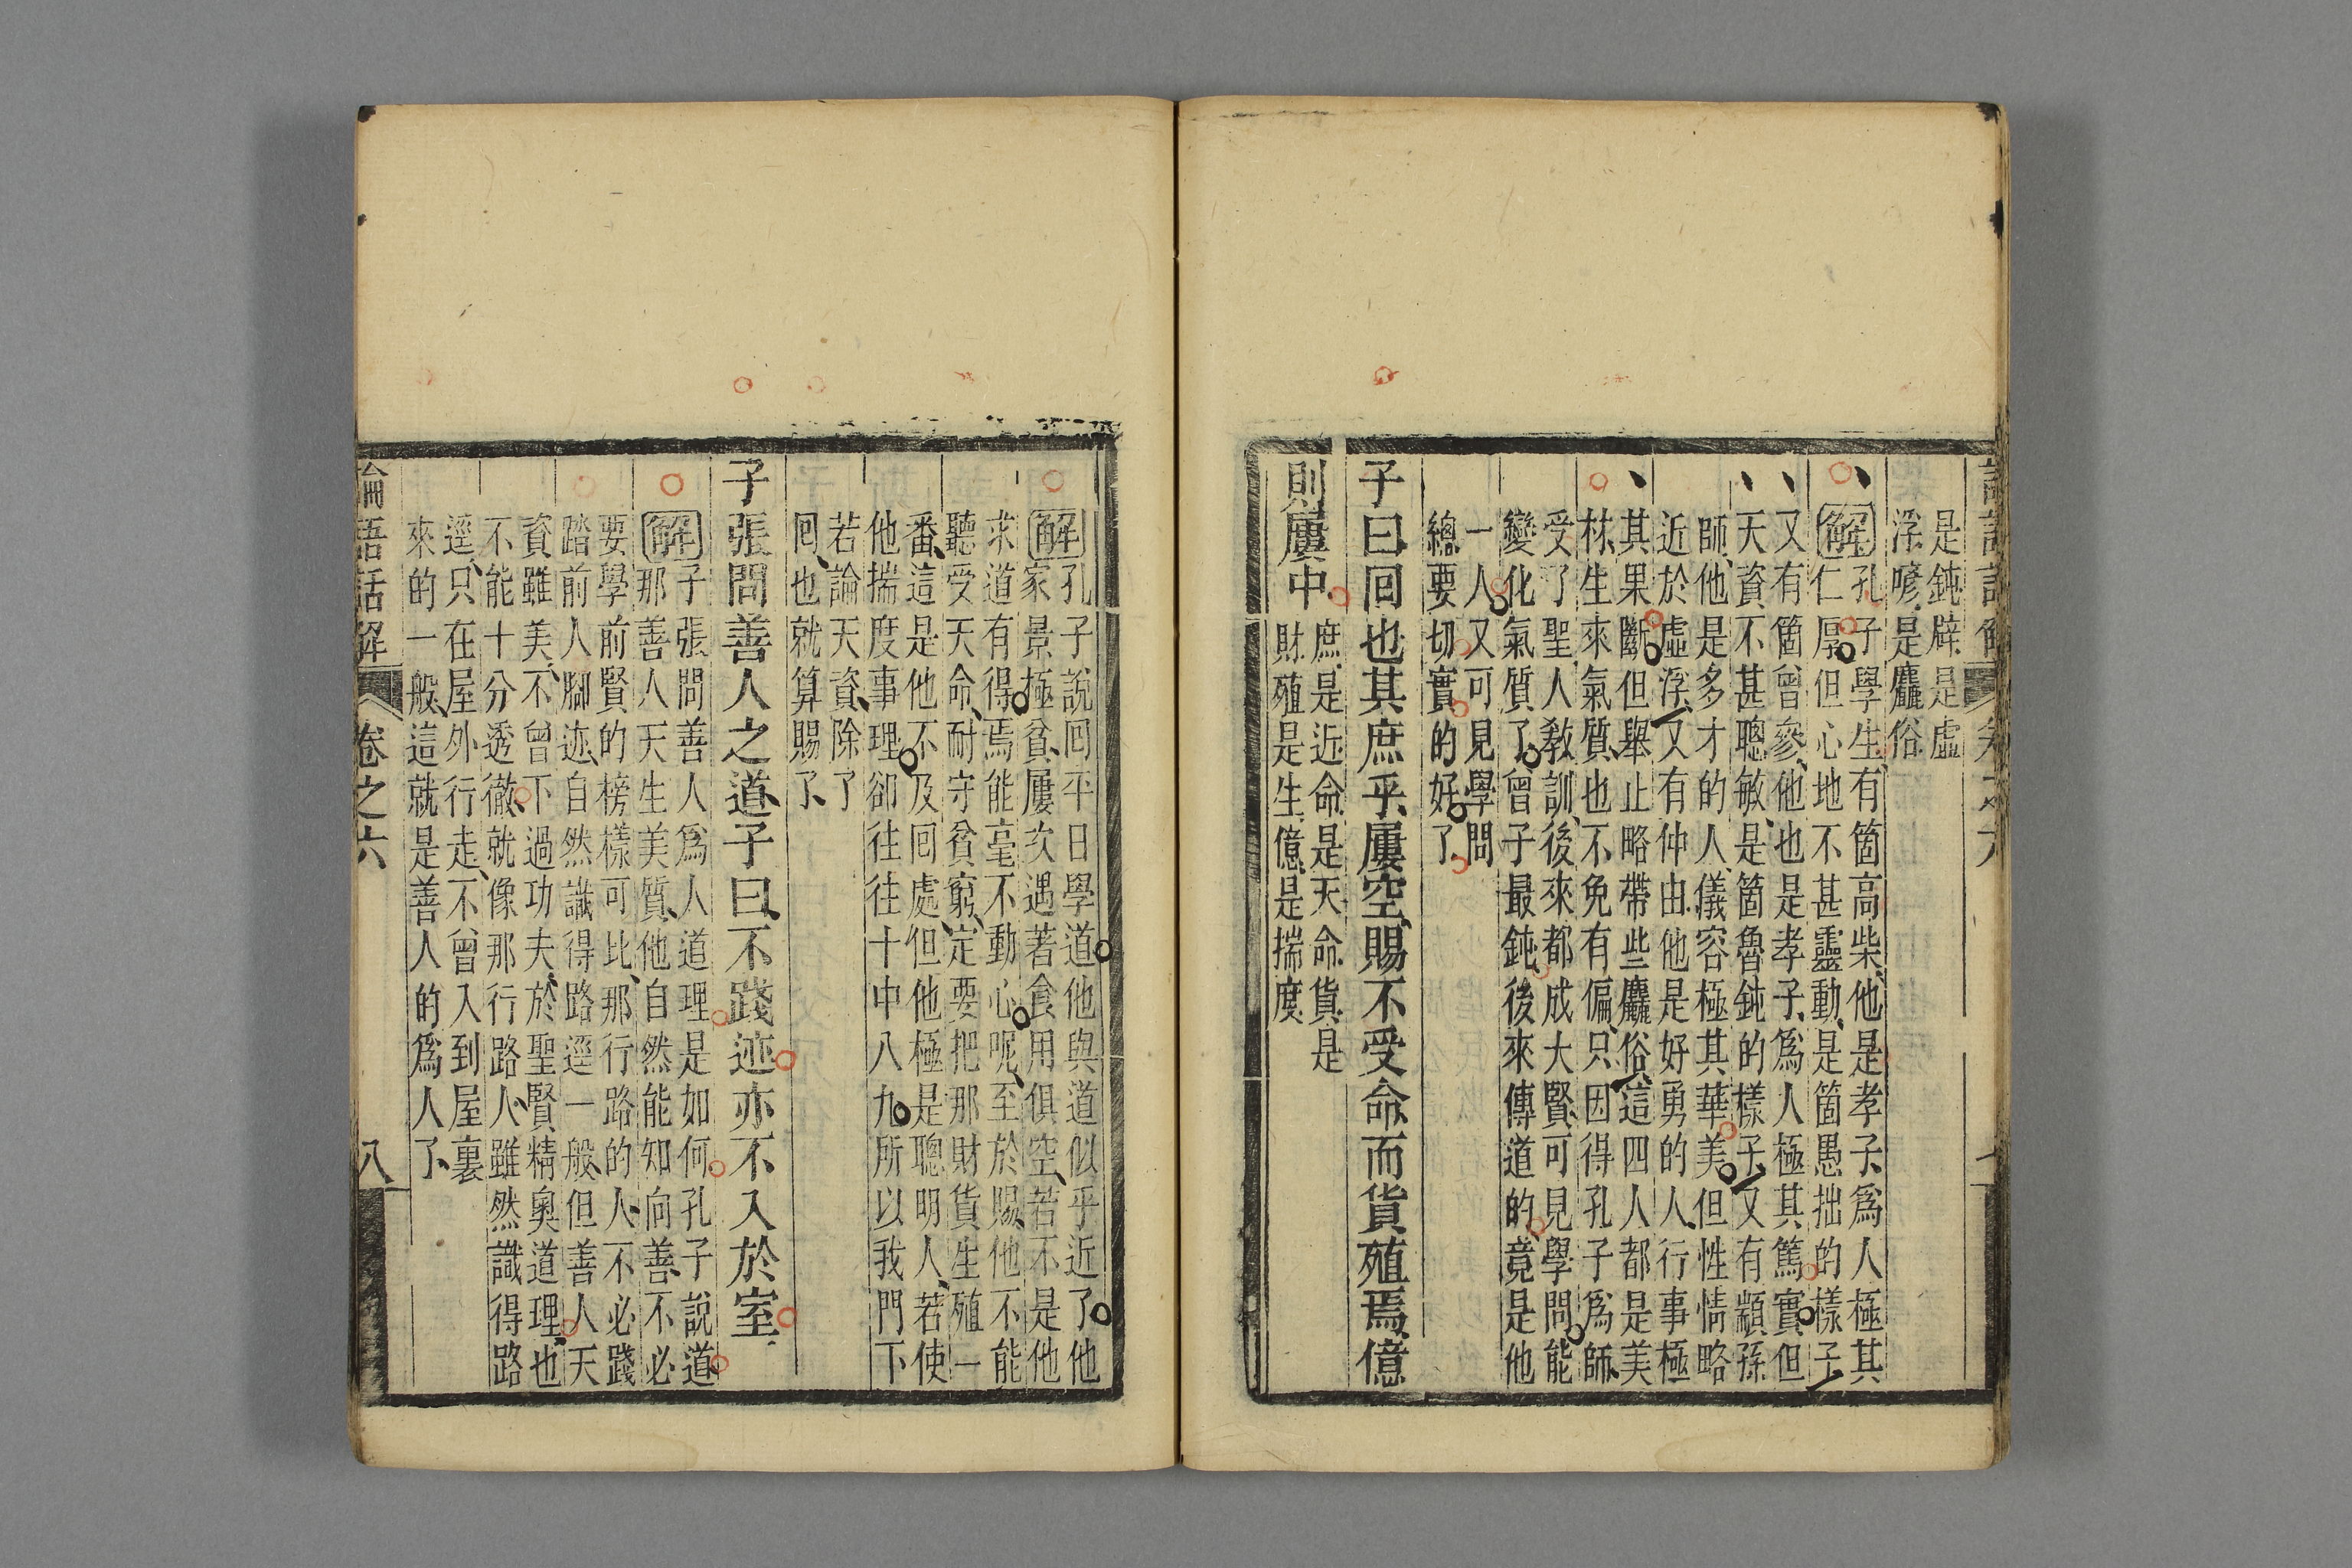 是鈍辟是虛
浮喭是麤俗
解孔子學生有箇高柴他是孝子爲人極其
仁厚但心地不甚靈動是箇愚拙的樣子
又有箇曾參他也是孝子爲人極其篤實但
天資不甚聰敏是箇魯鈍的樣子又有顓孫
師他是多才的人儀容極其華美但性情略
近於虛浮又有仲由他是好勇的人行事極
其果斷但舉止略帶些麤俗這四人都是美
材生來氣質也不免有偏只因得孔子爲師
受了聖人教訓後來都成大賢可見學問能
變化氣質了曾子最鈍後來傳道的竟是他
一人又可見學問
總要切實的好了
子曰回也其庶乎屢空賜不受命而貨殖焉億
則屢中
庶是近命是天命貨是
財殖是生億是揣度
解孔子說回平日學道他與道似乎近了他
家景極貧屢次遇著食用俱空若不是他
求道有得焉能毫不動心呢至於賜他不能
聽受天命耐守貧窮定要把那財貨生殖一
番這是他不及回處但他極是聰明人若使
他揣度事理卻往往十中八九所以我門下
若論天資除了
回也就算賜了
子張問善人之道子曰不踐迹亦不入於室
解子張問善人爲人道理是如何孔子說道
那善人天生美質他自然能知向善不必
要學前賢的榜樣可比那行路的人不必踐
踏前人腳迹自然識得路逕一般但善人天
資雖美不曾下過功夫於聖賢精奧道理也
不能十分透徹就像那行路人雖然識得路
逕只在屋外行走不曾入到屋裏
來的一般這就是善人的爲人了
論語話解
卷之六
八